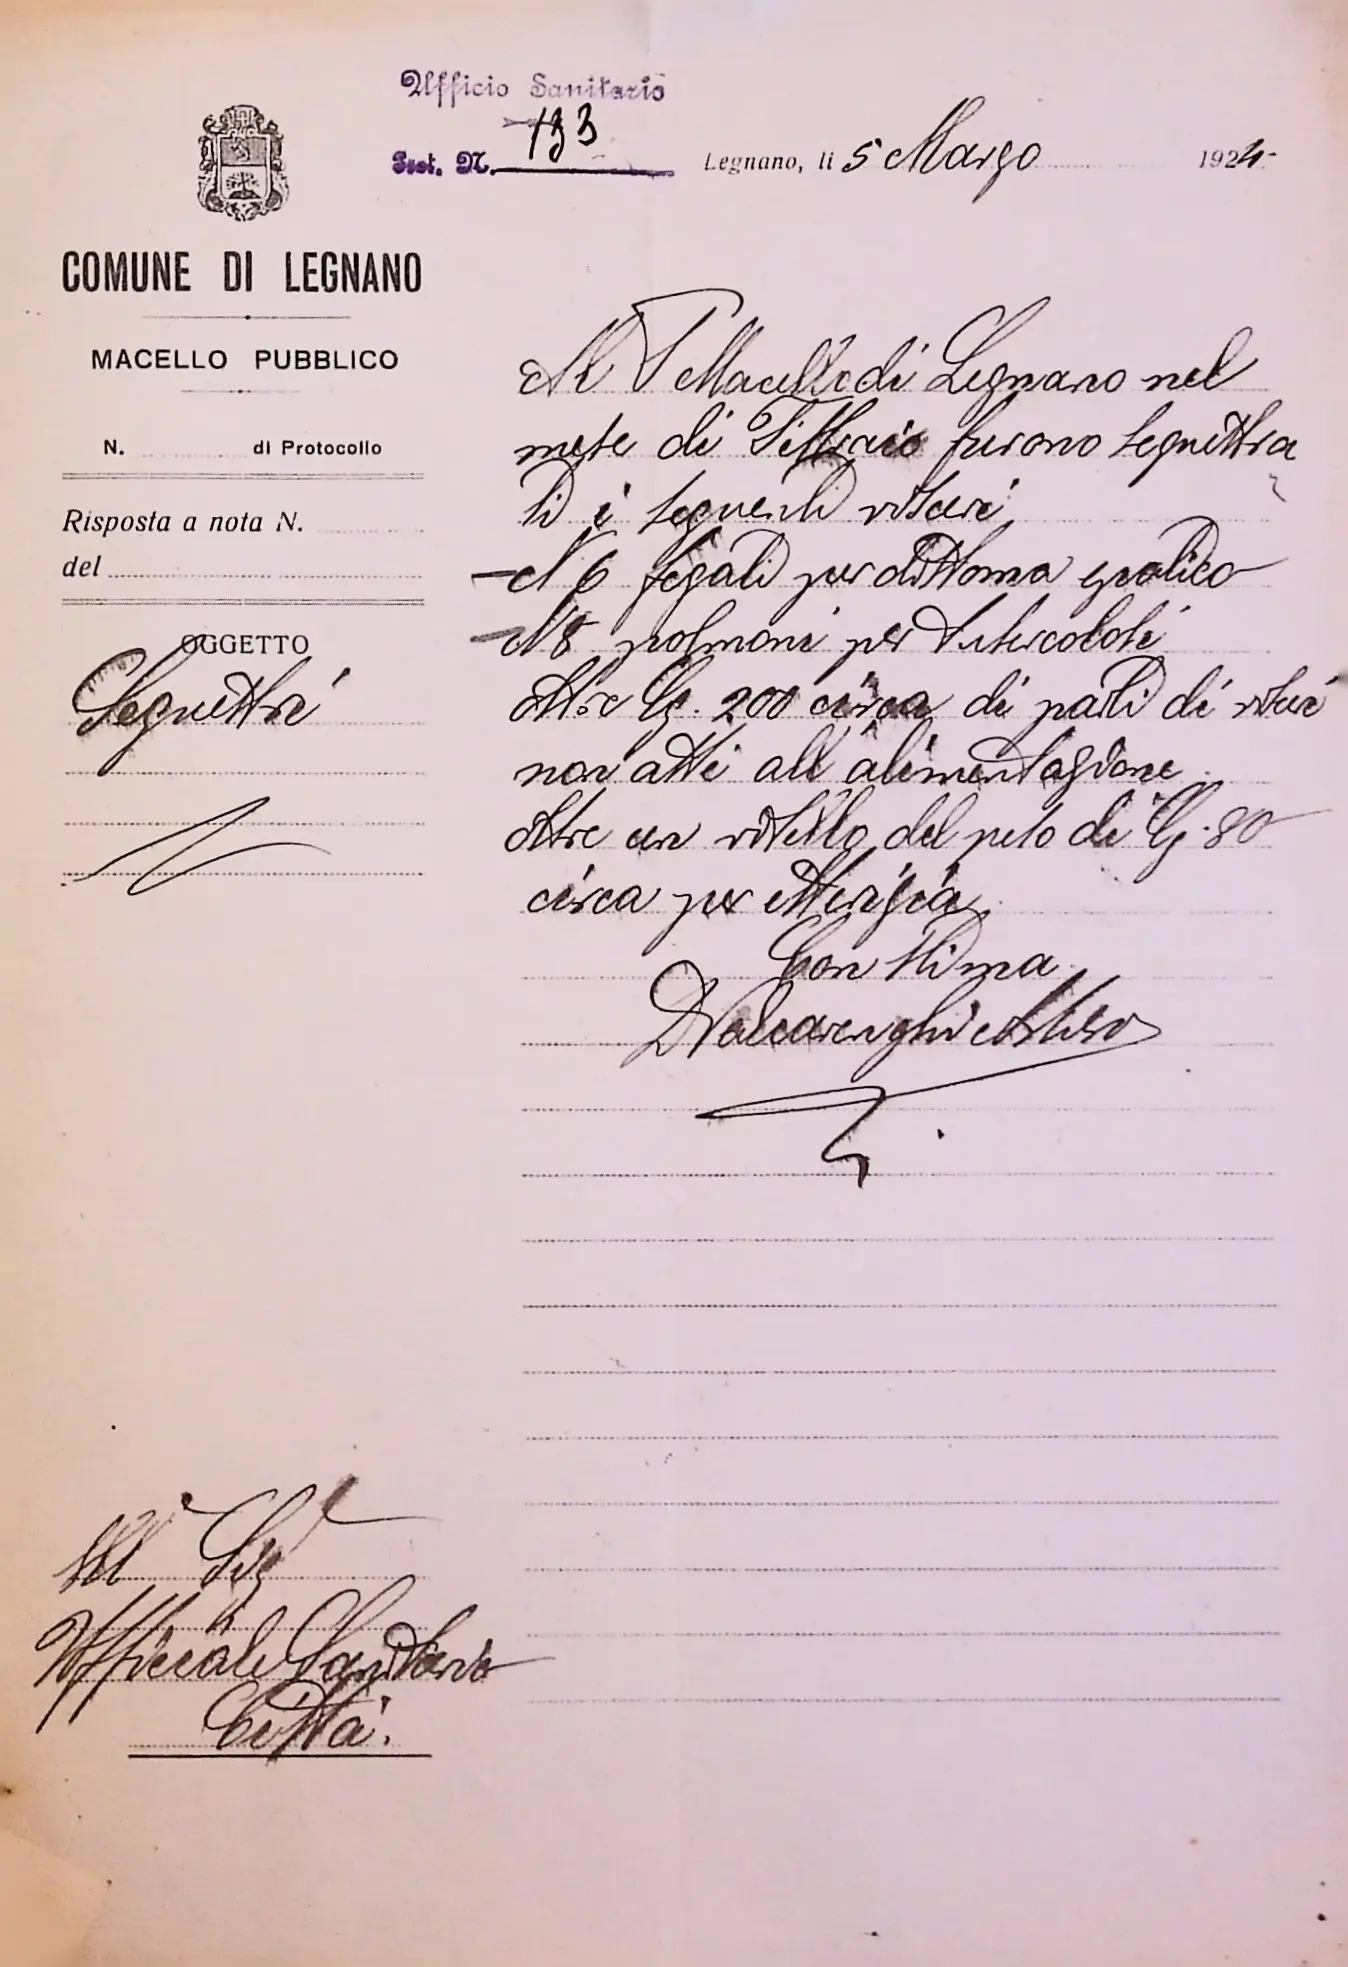 Ufficio Sanitario
Prot. N. 133
Legnano, li 5 Marzo 1924
COMUNE DI LEGNANO
MACELLO PUBBLICO
N. di Protocollo
Risposta a nota N.
del
OGGETTO
Sequestri
Al P. Macello di Legnano nel
mese di Febbraio furono sequestra
ti i seguenti visceri
N 6 fegati per distoma epatico
N 8 polmoni per tubercolosi
oltre Kg. 200 circa di parti di visceri
non atti all'alimentazione
oltre un vitello del peso di Kg. 80
circa per itterizia
Con stima
D Valcarenghi Arturo
All' Sig
Ufficiale Sanitario
Città.